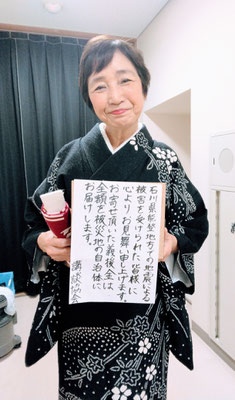 石川県能登地方での地震による
被害を受けられた皆様に
心よりお見舞い申し上げます。
お寄せ頂いた義援金は
全額を被災地の自治体に
お届けします。
講談協会